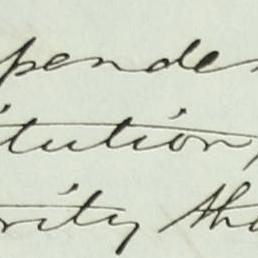 pende
itution,
ority tha